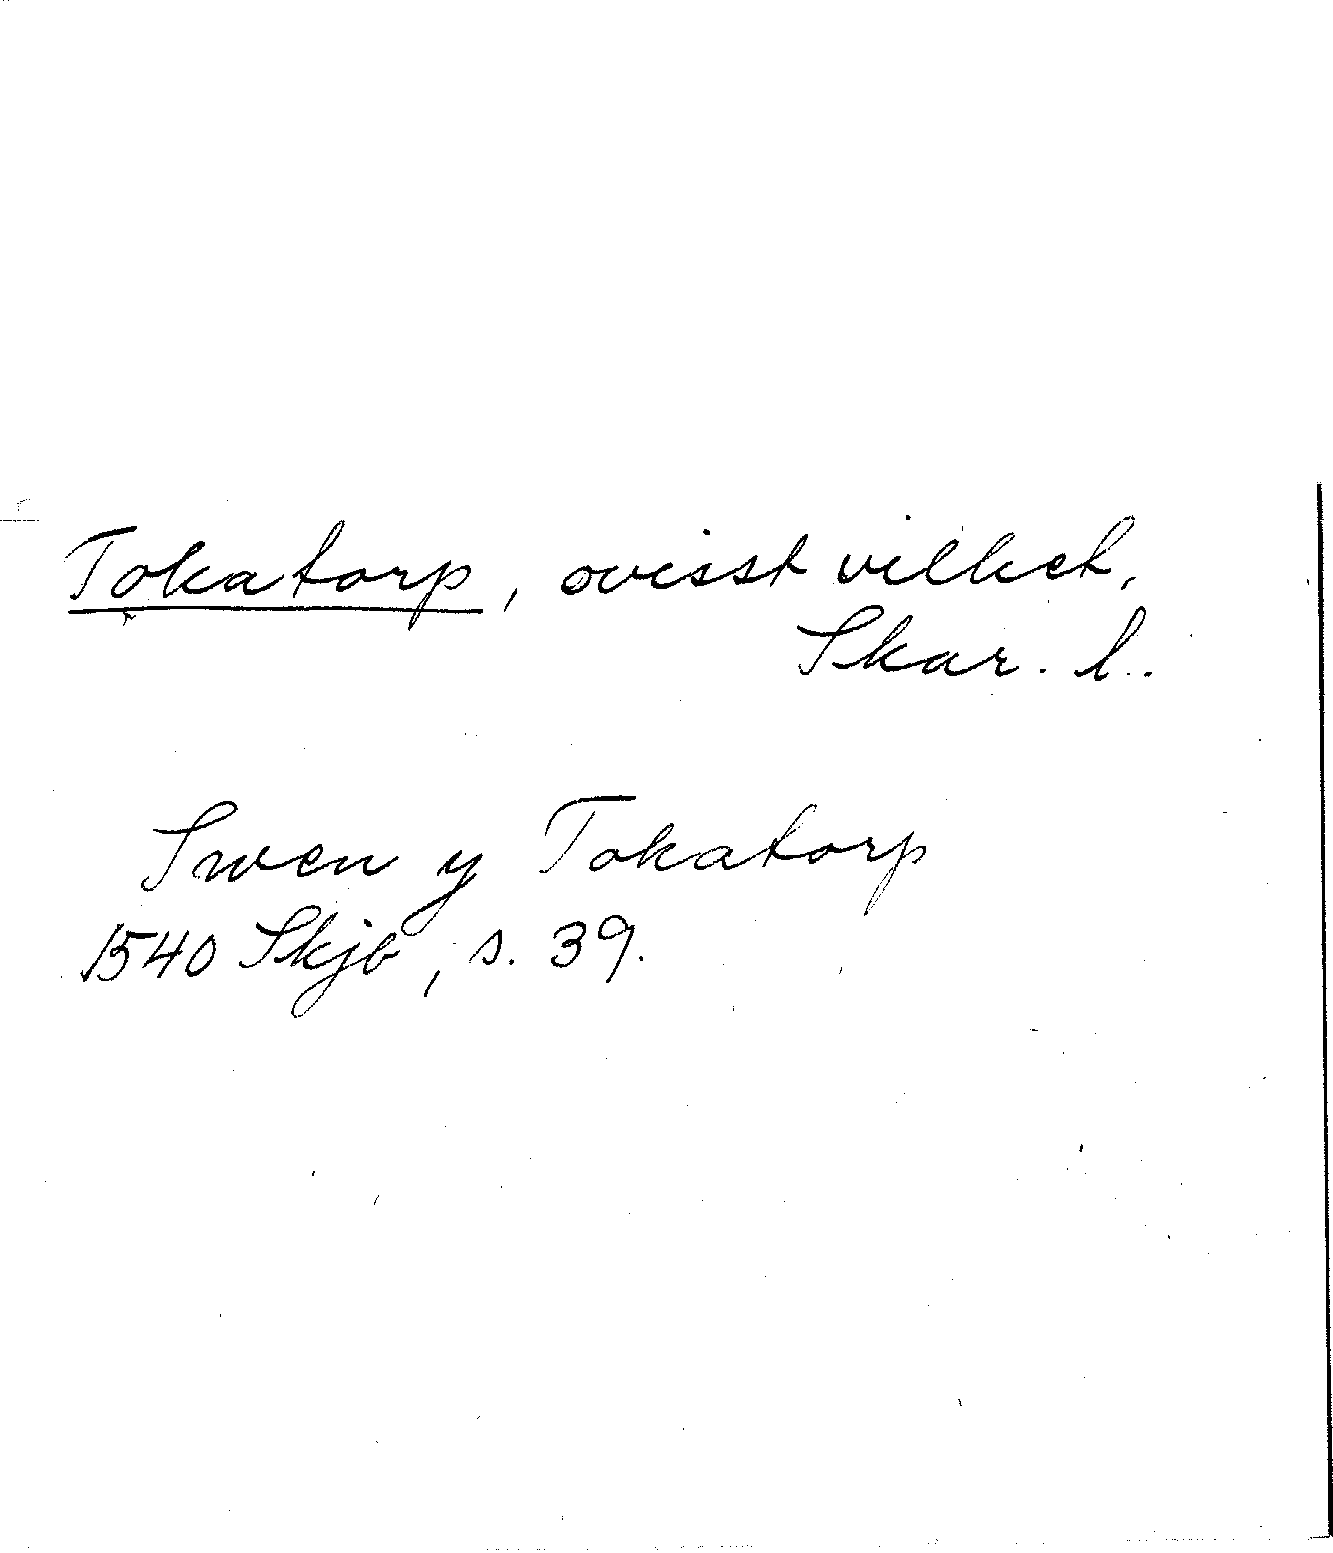 Tokatorp, ovisst vilket,
Skar. l.
Swen y Tokatorp
1540 Skjb, s. 39.